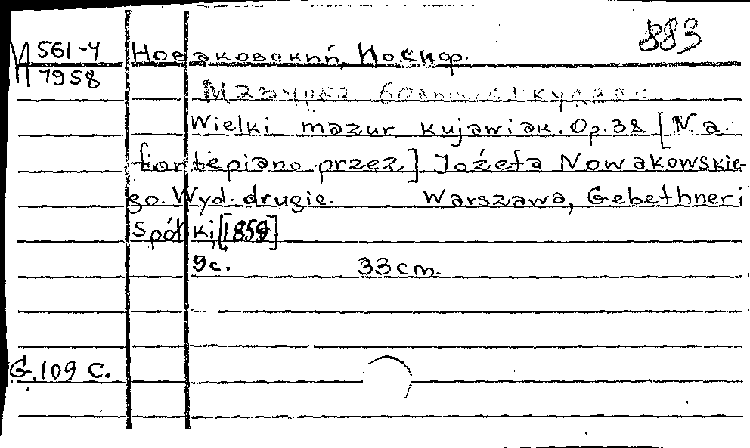 883
М 561-4
7958
Новаковский, Иосиф.
Мазурка
Wielki mazur kujawiak. Op. 38 [Na
fortepiano przez.] Józefa Nowakowskie-
go. Wyd. drugie. Warszawa, Gebethner i
Spółki, [1859]
9с. 33 cm.
G. 109 C.